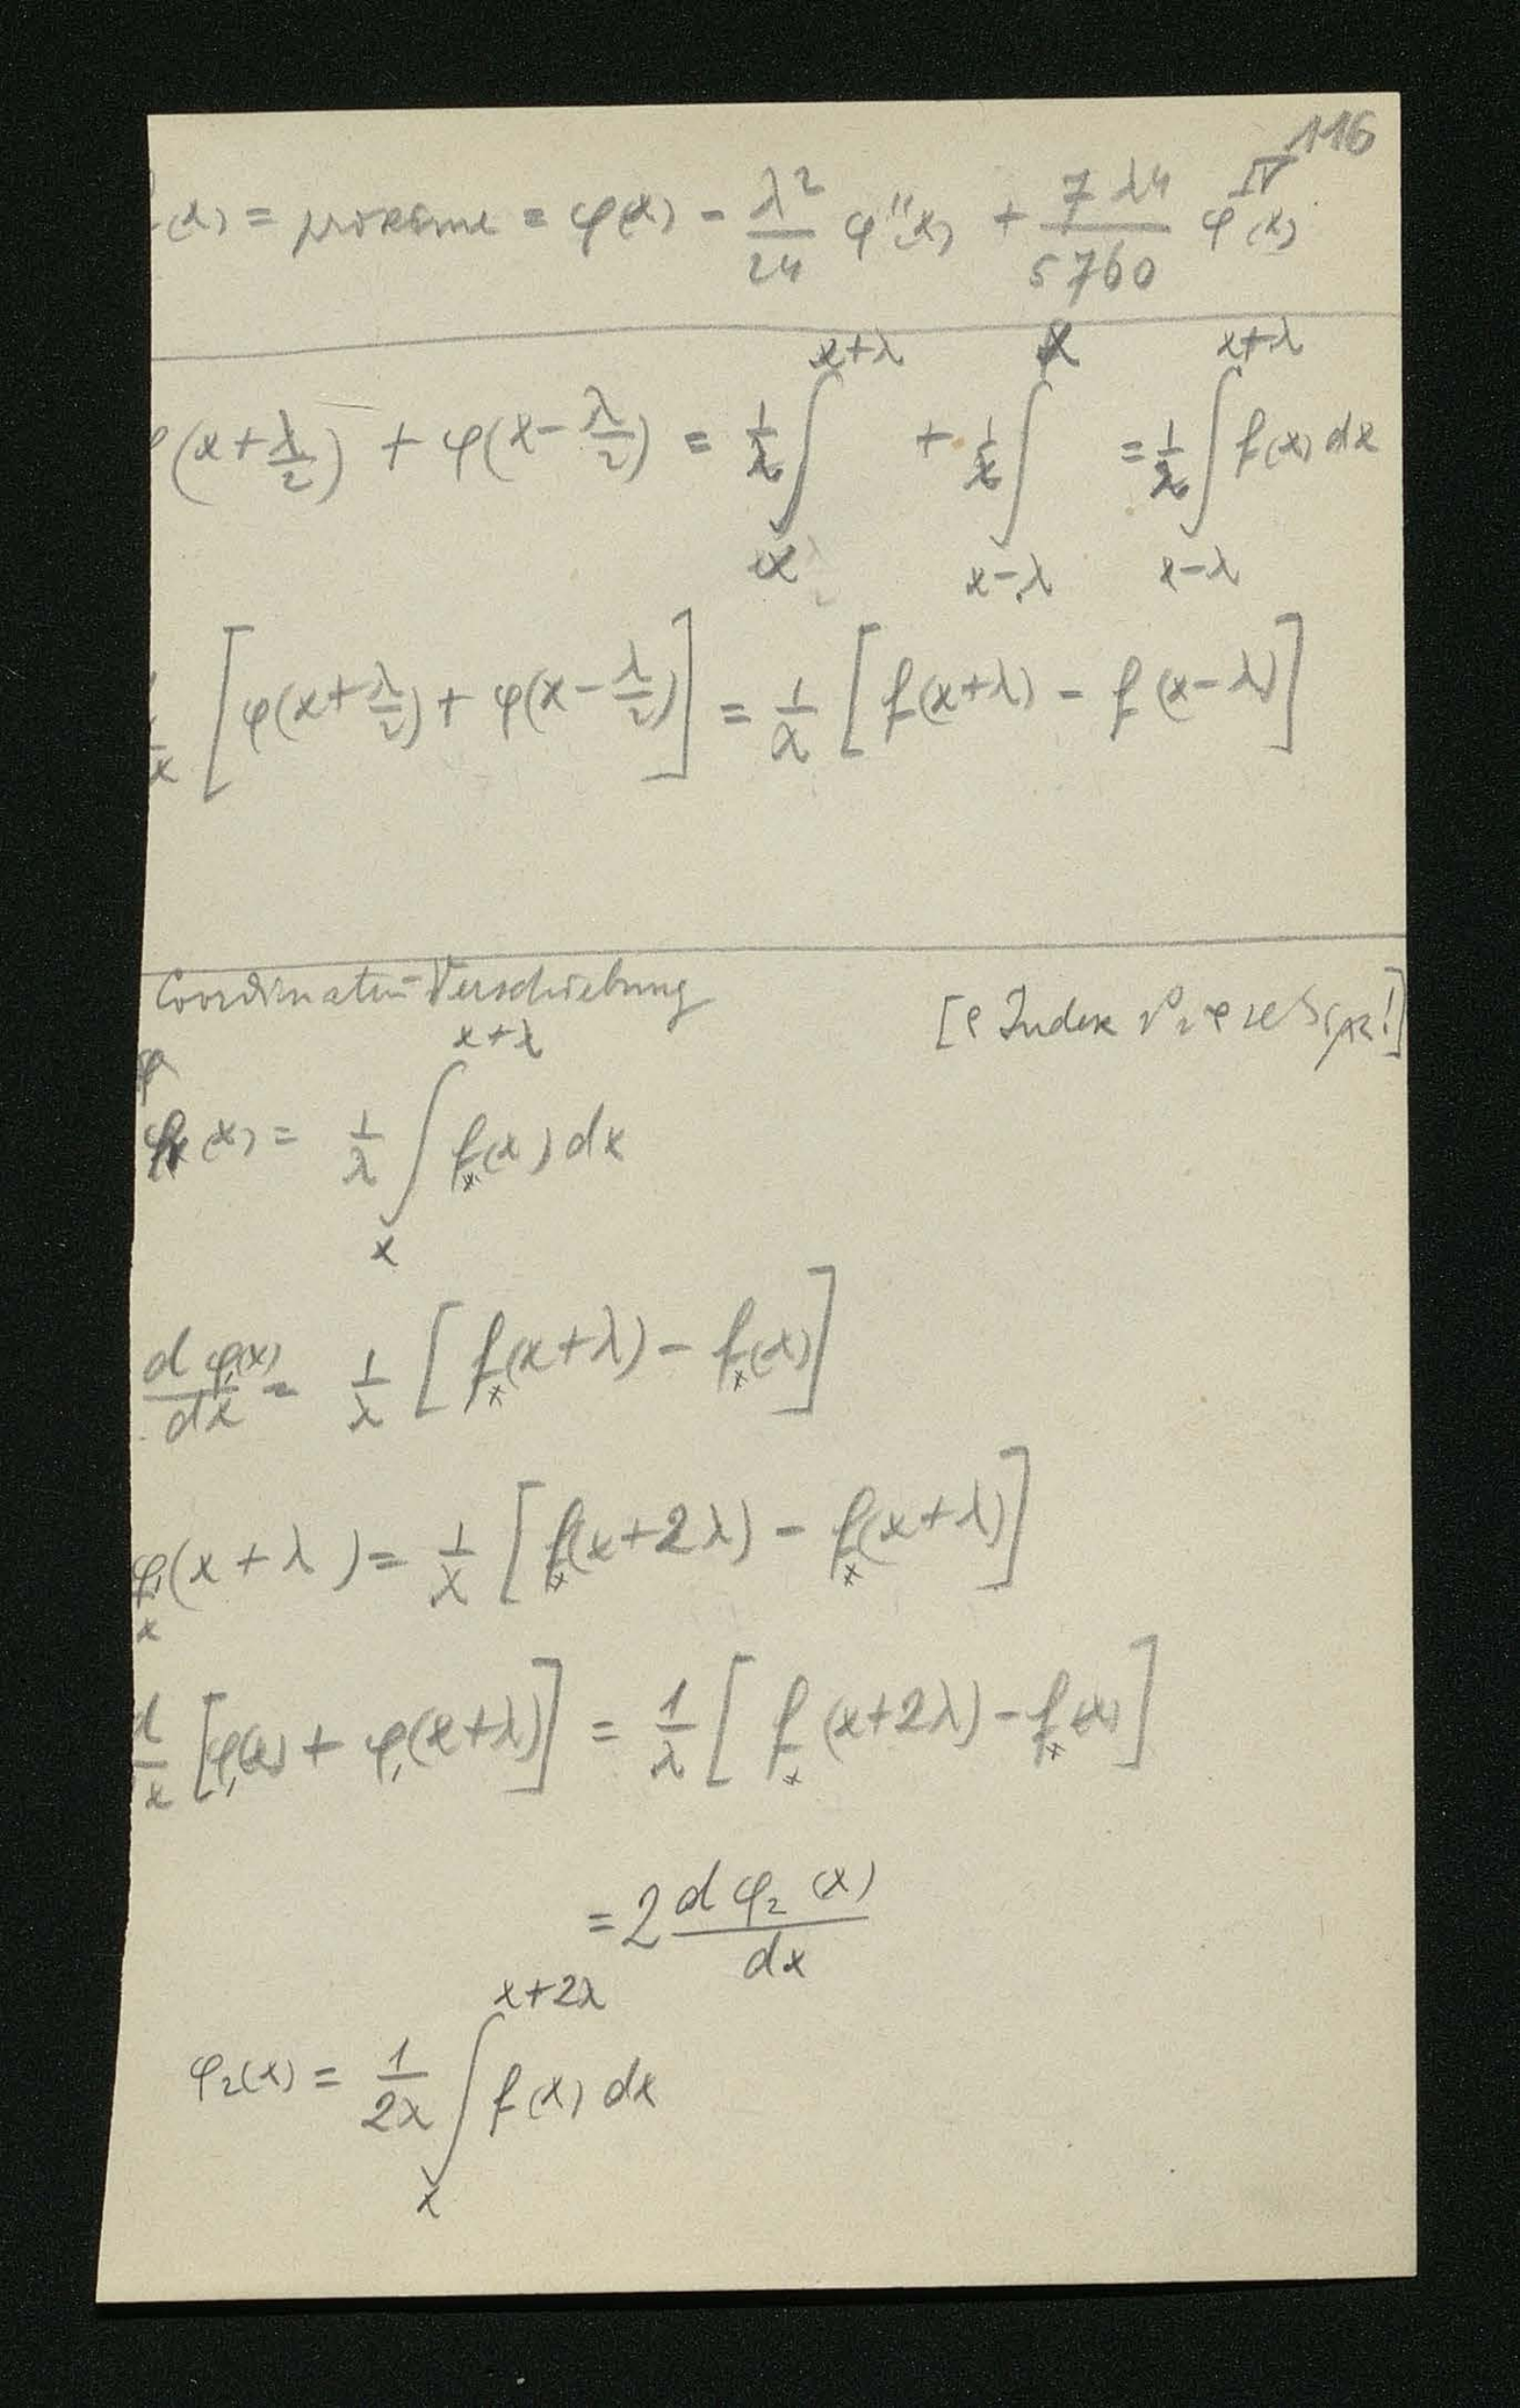 116
(x) = proxime = φ(x) - λ²/24 φ''(x) + 7λ4/5760 φ^IV(x)
(x+λ/2) + φ(x-λ/2) = 1/λ ∫_x^{x+λ} + 1/λ ∫_{x-λ}^x = 1/λ ∫_{x-λ}^{x+λ} f(x) dx
[φ(x+λ/2) + φ(x-λ/2)] = 1/λ [f(x+λ) - f(x-λ)]
Coordinaten-Verschiebung
[ Index
φ(x) = 1/λ ∫_x^{x+λ} f_x(x) dx
d φ₁(x)/dx = 1/λ [f_x(x+λ) - f_x(x)]
φ₁(x+λ) = 1/λ [f_x(x+2λ) - f_x(x+λ)]
d/x [φ₁(x) + φ₁(x+λ)] = 1/λ [f_x(x+2λ) - f_x(x)]
= 2 d φ₂(x)/dx
φ₂(x) = 1/2λ ∫_x^{x+2λ} f(x) dx